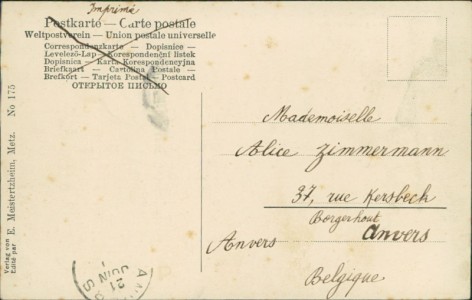 Imprimé
Postkarte — Carte postale
Weltpostverein — Union postale universelle
Correspondenzkarte — Dopisnice —
Levelező-Lap — Korespondenční listek
Dopisnica — Karta Korespondencyjna
Briefkaart — Cartolina Postale —
Brefkort — Tarjeta Postal — Postcard
ОТКРЫТОЕ ПИСЬМО
Mademoiselle
Alice Zimmermann
37, rue Kersbeck
Borgerhout
Anvers Anvers
Belgique
Verlag von
Edité par E. Meistertzheim, Metz. No 175
21
JUIN